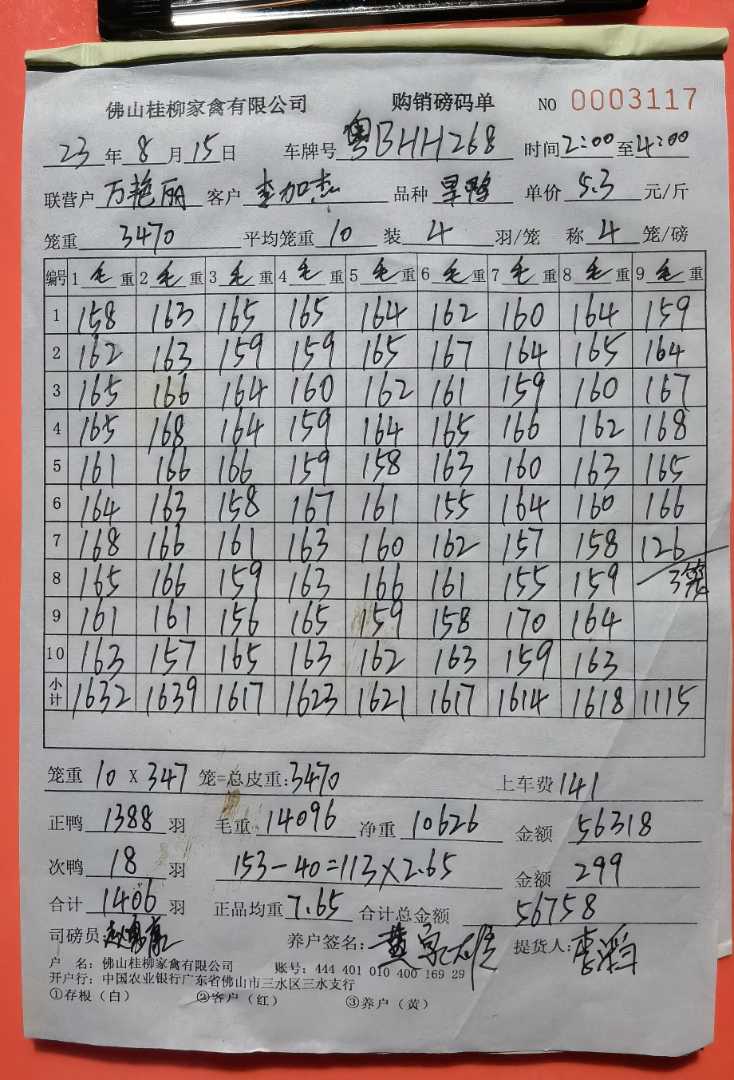 佛山桂柳家禽有限公司 购销磅码单 NO 0003117
23年8月15日 车牌号 粤BHH268 时间2:00至4:00
联营户 万艳丽 客户 李加杰 品种 旱鸭 单价 5.3 元/斤
笼重 3470 平均笼重 10 装 4 羽/笼 称 4 笼/磅
编号 1 毛 重 2 毛 重 3 毛 重 4 毛 重 5 毛 重 6 毛 重 7 毛 重 8 毛 重 9 毛 重
1 158 163 165 165 164 162 160 164 159
2 162 163 159 159 165 167 164 165 164
3 165 166 164 160 162 161 159 160 167
4 165 168 164 159 164 165 166 162 168
5 161 166 166 159 158 163 160 163 165
6 164 163 158 167 161 155 164 160 166
7 168 166 161 163 160 162 157 158 126
8 165 166 159 163 166 161 155 159 3笼
9 161 161 156 165 159 158 170 164
10 163 157 165 163 162 163 159 163
小计 1632 1639 1617 1623 1621 1617 1614 1618 1115
笼重 10 X 347 笼=总皮重:3470 上车费 141
正鸭 1388 羽 毛重 14096 净重 10626 金额 56318
次鸭 18 羽 153-40=113×2.65 金额 299
合计 1406 羽 正品均重 7.65 合计总金额 56758
司磅员: 养户签名: 提货人:
户 名: 佛山桂柳家禽有限公司 账号: 444 401 010 400 169 29
开户行: 中国农业银行广东省佛山市三水区三水支行
①存根(白) ②客户(红) ③养户(黄)